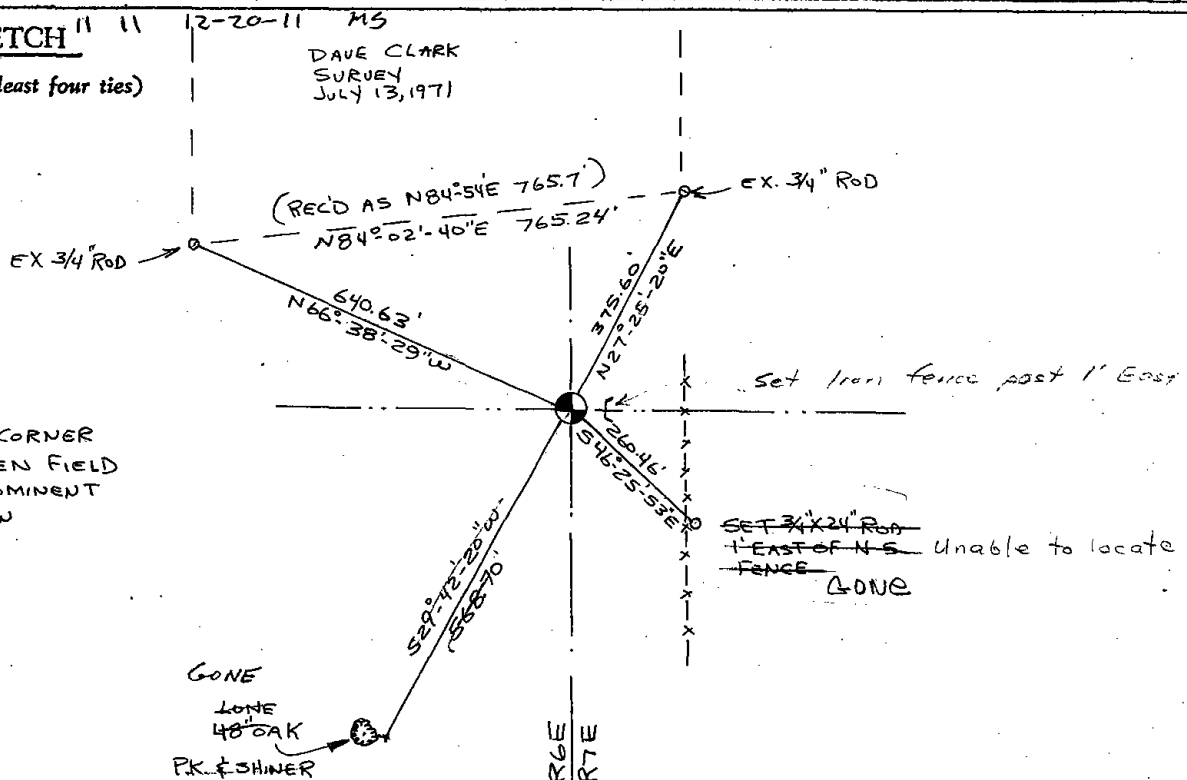 ETCH " 11 12-20-11 MS
least four ties)
DAVE CLARK
SURVEY
JULY 13, 1971
(REC'D AS N84°-54'E 765.7')
N84°-02'-40"E 765.24'
EX. 3/4" ROD
EX 3/4" ROD
640.63'
N66°-38'-29"W
375.60'
N27°-25'-20"E
Set Iron fence post 1' East
260.46'
S46°-25'-53"E
CORNER
EN FIELD
OMINENT
N
SET 3/4"X24" ROD
1' EAST OF N-S
FENCE
Unable to locate
GONE
S29°-42'-20"W
568.70'
GONE
LONE
48" OAK
P.K. & SHINER
R6E
R7E